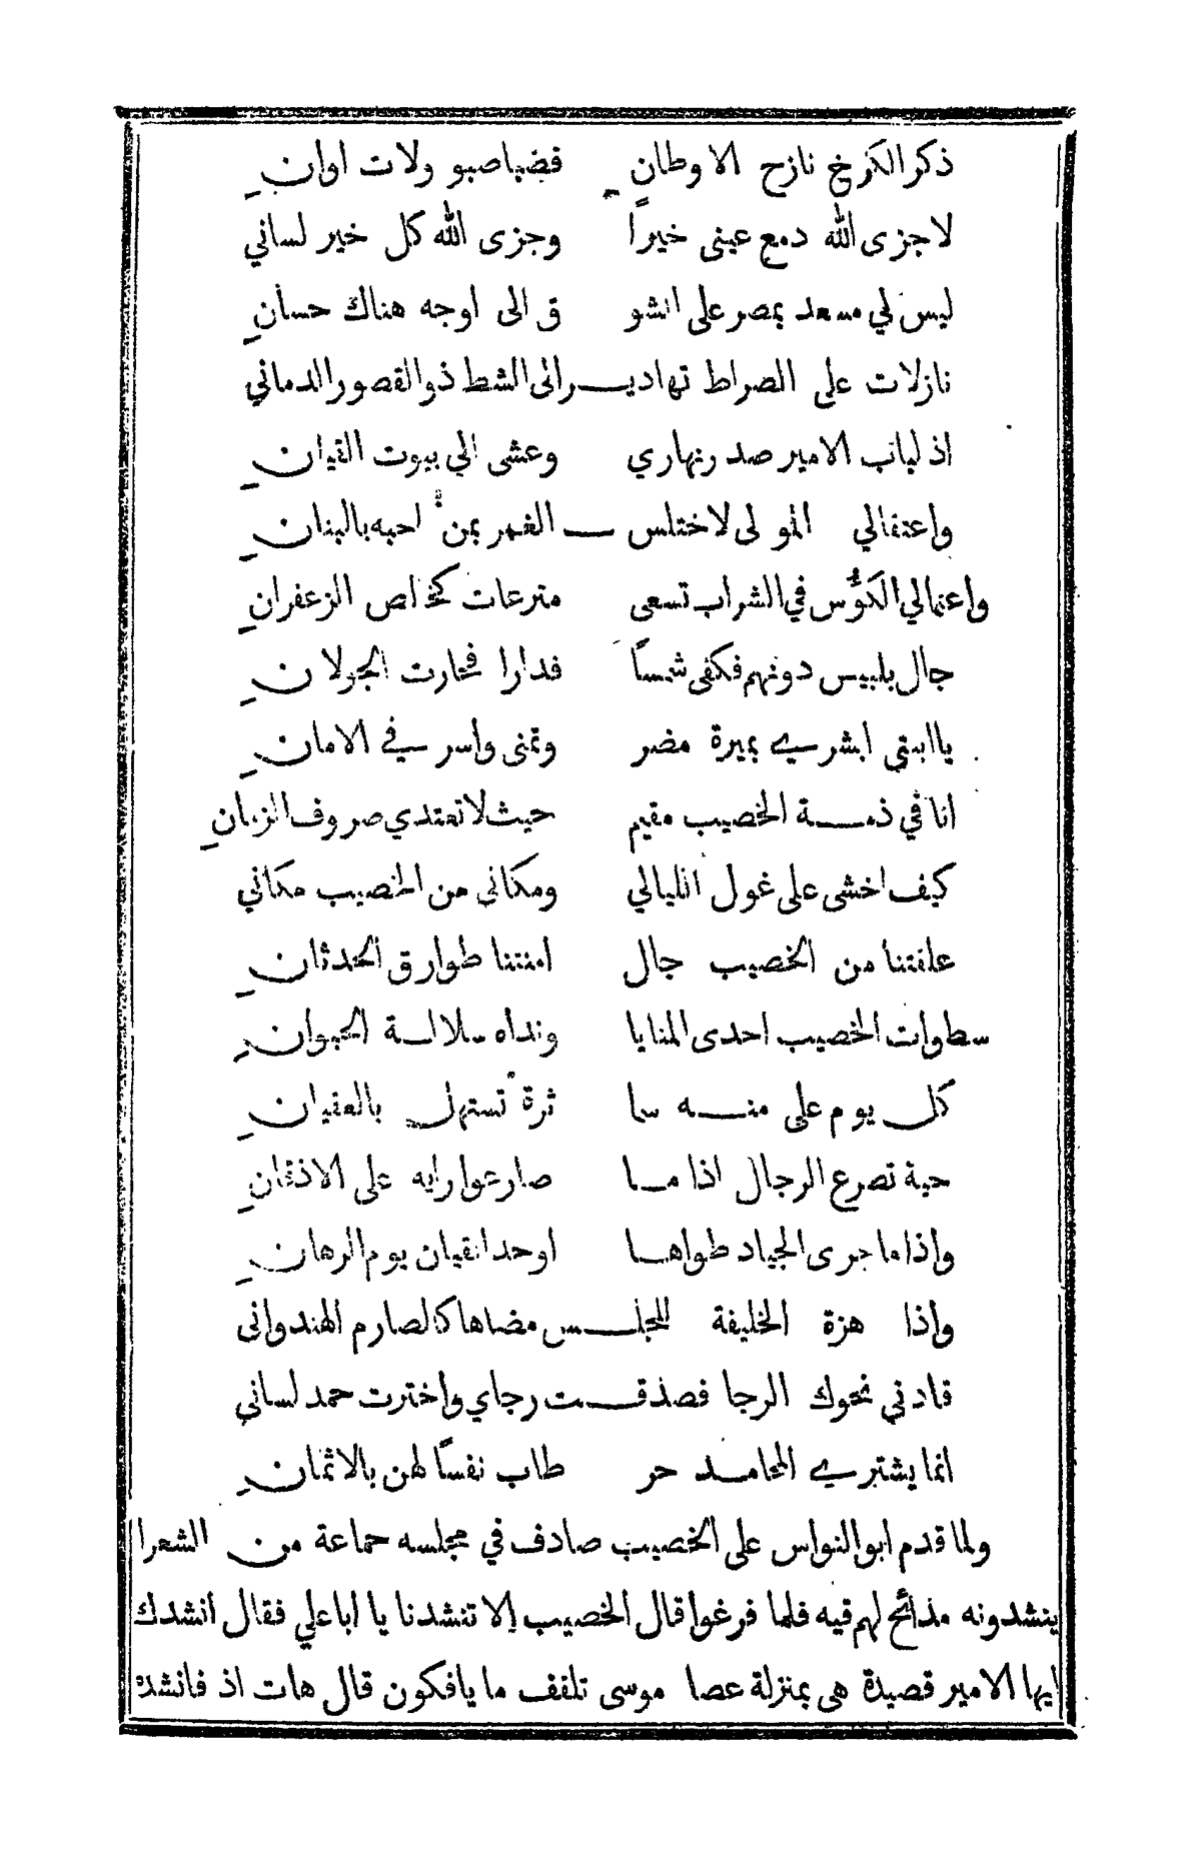 ذكر الكرخ نازح الاوطانِ فضباصبو ولات اوانِ
لا جزى الله دمع عينى خيراً وجزى الله كل خير لساني
ليس لي مسعد بمصر على الشو ق الى اوجه هناك حسانِ
نازلات على الصراط تهاديـــر الى الشط ذو القصور الدماني
اذ لباب الامير صدر نهاري وعشى الي بيوت القيانِ
واعتفالي المولى لاختلس ــ الغمر بمن احبه بالبنانِ
واعتمالي الكؤُس في الشراب تسعى مترعات كخالص الزعفرانِ
جال بلبيس دونهم فكفى شمساً فدارا فحارت الجولانِ
يا ابنتي ابشري بميرة مضر وتمنى واسر في الامانِ
انا في ذمــة الخصيب مقيم حيث لا تعتدي صروف الزمانِ
كيف اخشى على غول الليالي ومكانى من الخصيب مكاني
علقتنا من الخصيب جال امنتنا طوارق الحدثانِ
سطوات الخصيب احدى المنايا ونداه سلالــة الحيوانِ
كل يوم على منــه سا ثرة تستهل بالعقيانِ
حية تصرع الرجال اذا مــا صارعوا رايه على الاذقانِ
واذا ما جرى الجياد طواهــا اوحد القيان يوم الرهانِ
واذا هزة الخليفة للجلــس مضاها كالصارم الهندوانى
قادني نحوك الرجا فصذقــت رجاي واخترت حمد لساني
انما يشتري المحامــد حر طاب نفساً لهن بالاثمانِ
ولما قدم ابو النواس على الخصيب صادف في مجلسه حماعة من الشعرا
ينشدونه مذائح لهم فيه فلما فرغوا قال الخصيب الا تنشدنا يا ابا علي فقال انشدك
ايها الامير قصيدة هى بمنزلة عصا موسى تلفف ما يافكون قال هات اذ فانشده